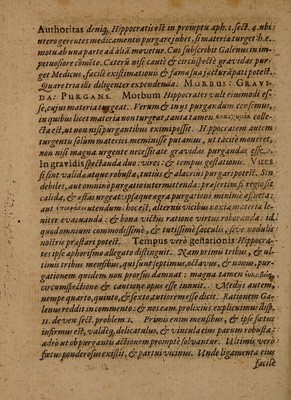 Authoritas deniq; Hippocratis est in promptu aph. 1. sect. 4. ubi
utero gerẽtes medicamento purgare jubet, si materia turget h.e.
motu ab una parte ad aliã movetur. Cui subscribit Galenus in im-
petuosiore cõmẽto. Caterũ nisi cautè & circũspectè gravidas pur-
get Medicus, facilè existimationis & famæ suæ jacturã pati potest.
Quare tria illi diligenter expendenda: MORBUS: GRAVI-
DA: PURGANS. Morbum Hippocrates vult ejusmodi es-
se, cujus materia turgeat. Verum & in ijs purgandum censemus,
in quibus licet materia non turgeat, tanta tamen colle-
cta est, ut non nisi purgantibus eximi possit. Hippocratem autem
turgentu solum materies meminisse putamus, ut tacitè moneret,
non nisi magna urgente necessitate gravidas purgandas esse.
In gravidis spectanda duo: vires: & tempus gestationis. Vires
si sint valida atque robusta, tutius & alacrius purgari potest. Sin
debiles, aut omninò purgatio intermittenda: præsertim si regio sit
calida, & æstas urgeat: ipsaque ægra purgationi minimè assueta:
aut utendum: hoc est, alternis vicibus noxia materia le-
niter evacuanda: & bona victus ratione viribus roboranda: id.
quod omnium commodissimè, & tutissimè sacculis, seu nodulis
nostris præstari potest. Tempus verò gestationis Hippocra-
tes ipse aphorismo allegato distinguit. Nam primis tribus, & ul-
timis tribus mensibus, qui sunt septimus, octavus, & nonus, pur-
gationem quidem non prorsus damnat: magna tamen
circumspectione & cautione opus esse innuit. Medijs autem,
nempe quarto, quinto, & sexto, tutiorem esse dicit. Rationem Ga-
lenus reddit in commento: & nos eam prolixius explicuimus disp.
11. de ven. sect. problem. 2. Primis enim mensibus, & ipse fœtus
infirmus est, valdeq; delicatulus, & vincula ejus parum robusta:
adeò ut ob purgantis actionem promptè solvantur. Ultimis verò
fœtus ponderosus existit, & partui vicinus. Unde ligamenta ejus
facilè